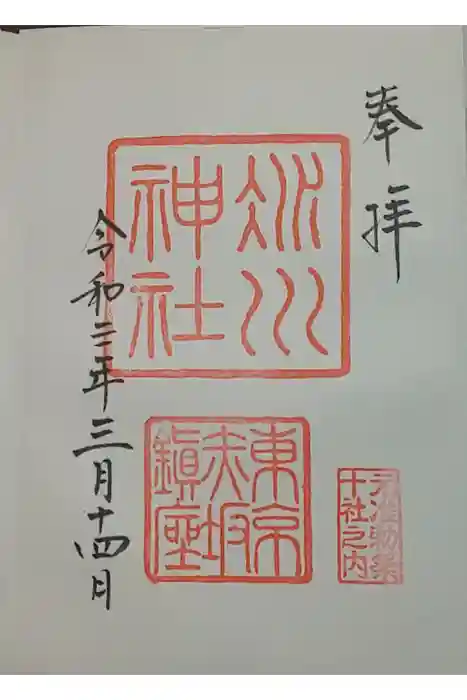 奉拝
氷川
神社
東京
赤坂
鎮座
十社之内
令和二年三月十四日